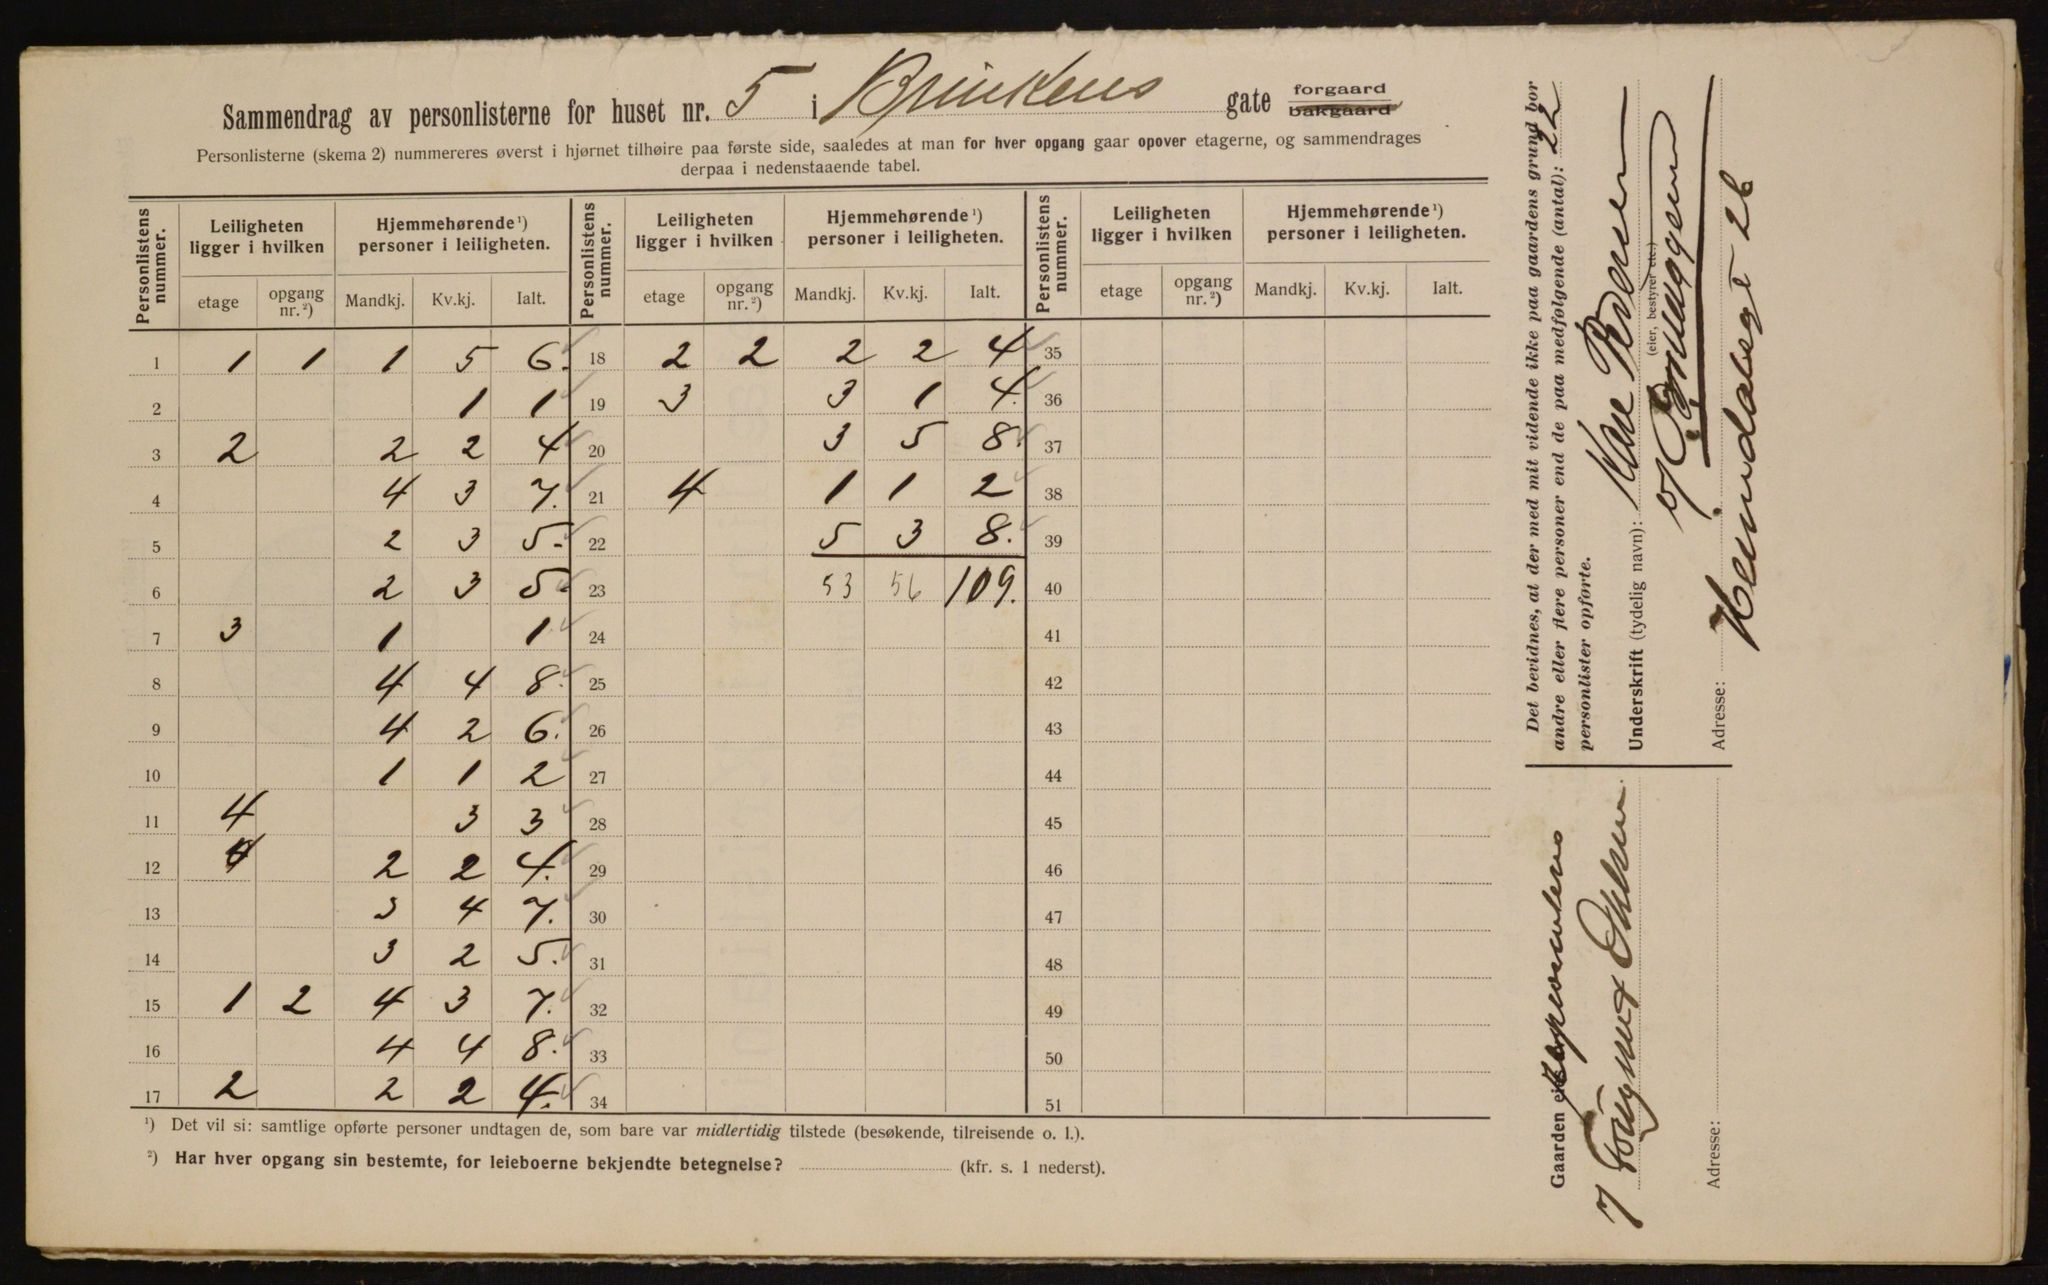 Sammendrag av personlisterne for huset nr. 5 i Brinkens gate forgaard bakgaard
Personlisterne (skema 2) nummereres øverst i hjørnet tilhøire paa første side, saaledes at man for hver opgang gaar opover etagerne, og sammendrages
derpaa i nedenstaaende tabel.
Personlistens nummer. Leiligheten ligger i hvilken Hjemmehørende ¹) personer i leiligheten. Personlistens nummer. Leiligheten ligger i hvilken Hjemmehørende ¹) personer i leiligheten. Personlistens nummer. Leiligheten ligger i hvilken Hjemmehørende ¹) personer i leiligheten.
etage opgang nr. ²) Mandkj. Kv.kj. Ialt. etage opgang nr. ²) Mandkj. Kv.kj. Ialt. etage opgang nr. ²) Mandkj. Kv.kj. Ialt.
1 1 1 1 5 6. 18 2 2 2 2 4 35
2 1 1 19 3 3 1 4. 36
3 2 2 2 4 20 3 5 8. 37
4 4 3 7. 21 4 1 1 2 38
5 2 3 5. 22 5 3 8. 39
6 2 3 5. 23 53 56 109. 40
7 3 1 1 24 41
8 4 4 8. 25 42
9 4 2 6. 26 43
10 1 1 2 27 44
11 4 3 3 28 45
12 4 2 2 4. 29 46
13 3 4 7. 30 47
14 3 2 5. 31 48
15 1 2 4 3 7. 32 49
16 4 4 8. 33 50
17 2 2 2 4. 34 51
¹) Det vil si: samtlige opførte personer undtagen de, som bare var midlertidig tilstede (besøkende, tilreisende o. l.).
²) Har hver opgang sin bestemte, for leieboerne bekjendte betegnelse? (kfr. s. 1 nederst).
Det bevidnes, at der med mit vidende ikke paa gaardens grund bor
andre eller flere personer end de paa medfølgende (antal): 22
personlister opførte.
Underskrift (tydelig navn):
(eier, bestyrer etc.)
Adresse: Heimdalsgt 26
Gaarden
Adresse: